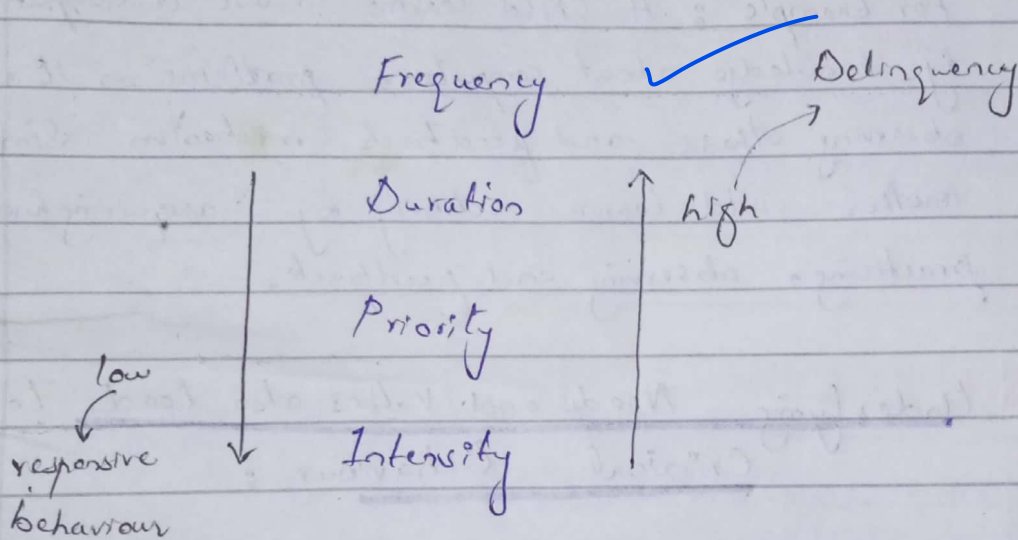 Frequency Delinquency
Duration high
Priority
low
Intensity
responsive
behaviour